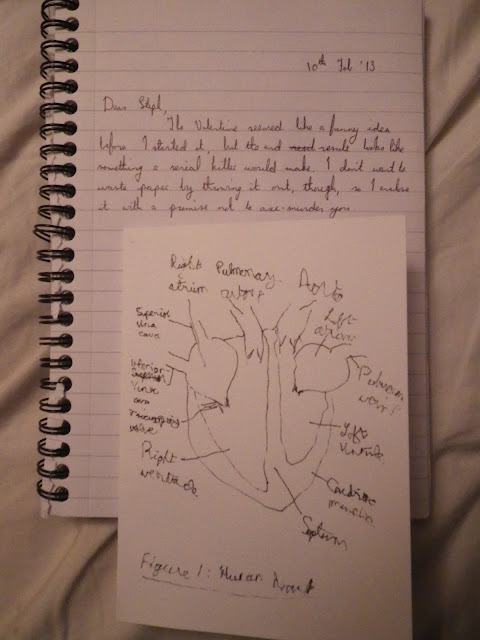 10th Feb '13
Dear Steph,
The Valentine seemed like a funny idea
before I started it, but the end result looks like
something a serial killer would make. I don't want to
waste paper by throwing it out, though, so I enclose
it with a promise not to axe-murder you.
Right Pulmonary Aorta
atrium artery
Left
atrium
Superior
vena
cava
Inferior
vena
cava
Pulmonary
valve
Right
ventricle
Left
ventricle
Cardiac
muscle
Septum
Figure 1: Human Heart